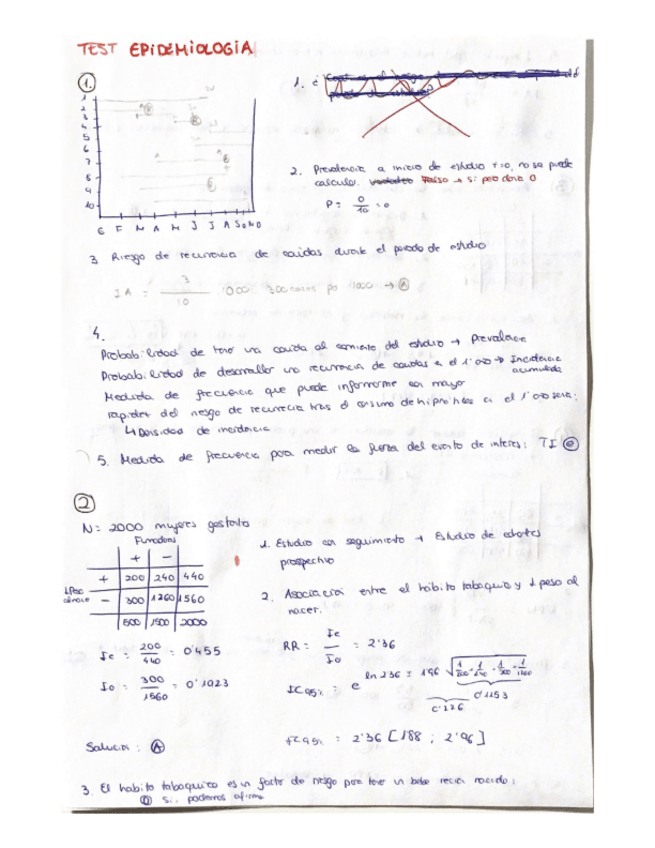 TEST EPIDEMIOLOGIA
1.
1. ¿
1
2
3
4
5
6
7
8
9
10
E F M A M J J A S O N D
2. Prevalencia a inicio de estudio t=0, no se puede
calcular. Falso → si pero daria 0
P = 0/10 = 0
3 Riesgo de recurrencia de caidas durante el periodo de estudio
IA = 3/10 1000 300 casos por 1000 → A
4.
Probabilidad de tener una caida al comienzo del estudio → Prevalencia
Probabilidad de desarrollar una recurrencia de caidas en el 1º año → Incidencia
acumulada
Medida de frecuencia que puede informarme con mayor
rapidez del riesgo de recurrencia tras el consumo de hipnóticos en el 1º año sera:
↳ Densidad de incidencia
5. Medida de frecuencia para medir la fuerza del evento de interes: TI
2
N = 2000 mujeres gestantes
Fumadoras
+ -
+ 200 240 440
- 300 1260 1560
500 1500 2000
↓Peso
1. Estudio con seguimiento → Estudio de cohortes
prospectivo
2. Asociación entre el habito tabaquico y ↓ peso al
nacer.
Ie = 200/440 = 0'455
Io = 300/1560 = 0'1923
RR = Ie/Io = 2'36
IC95% = e ln 2'36 ± 1'96 √ 1/200 + 1/240 + 1/300 + 1/1260
0'1153
0'226
IC95% = 2'36 [1'88 ; 2'96]
Solucion: A
3. El habito tabaquico es un factor de riesgo para tener un bebe recien nacido:
si, podemos afirmar